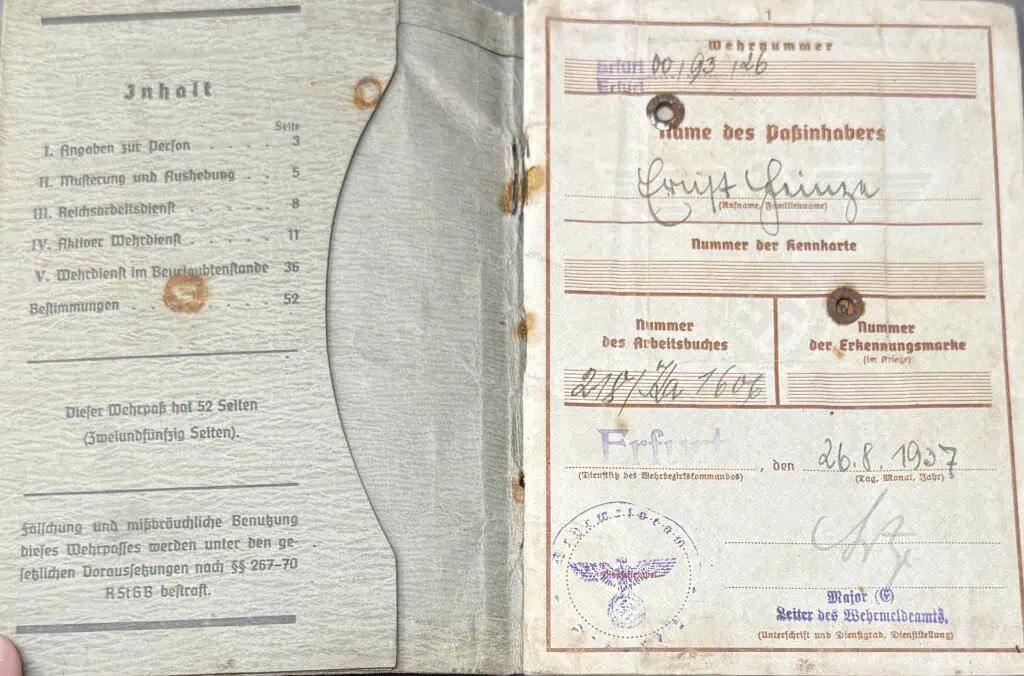 Inhalt
Seite
I. Angaben zur Person . . . . . . 3
II. Musterung und Aushebung . . 5
III. Reichsarbeitsdienst . . . . . . 8
IV. Aktiver Wehrdienst . . . . . . 11
V. Wehrdienst im Beurlaubtenstande 36
Bestimmungen . . . . . . . . . 52
Dieser Wehrpaß hat 52 Seiten
(Zweiundfünfzig Seiten).
Fälschung und mißbräuchliche Benutzung
dieses Wehrpasses werden unter den ge-
setzlichen Voraussetzungen nach §§ 267-70
RStGB bestraft.
1
Wehrnummer
Erfurt 00/93/26
Erfurt
Name des Paßinhabers
Ernst Heinze
(Rufname, Familienname)
Nummer der Kennkarte
Nummer
des Arbeitsbuches
218/ 1606
Nummer
der Erkennungsmarke
(im Kriege)
Erfurt, den 26.8.1937
(Dienstsitz des Wehrbezirkskommandos) (Tag, Monat, Jahr)
Dienststempel
Major (E)
Leiter des Wehrmeldeamts.
(Unterschrift und Dienstgrad, Dienststellung)